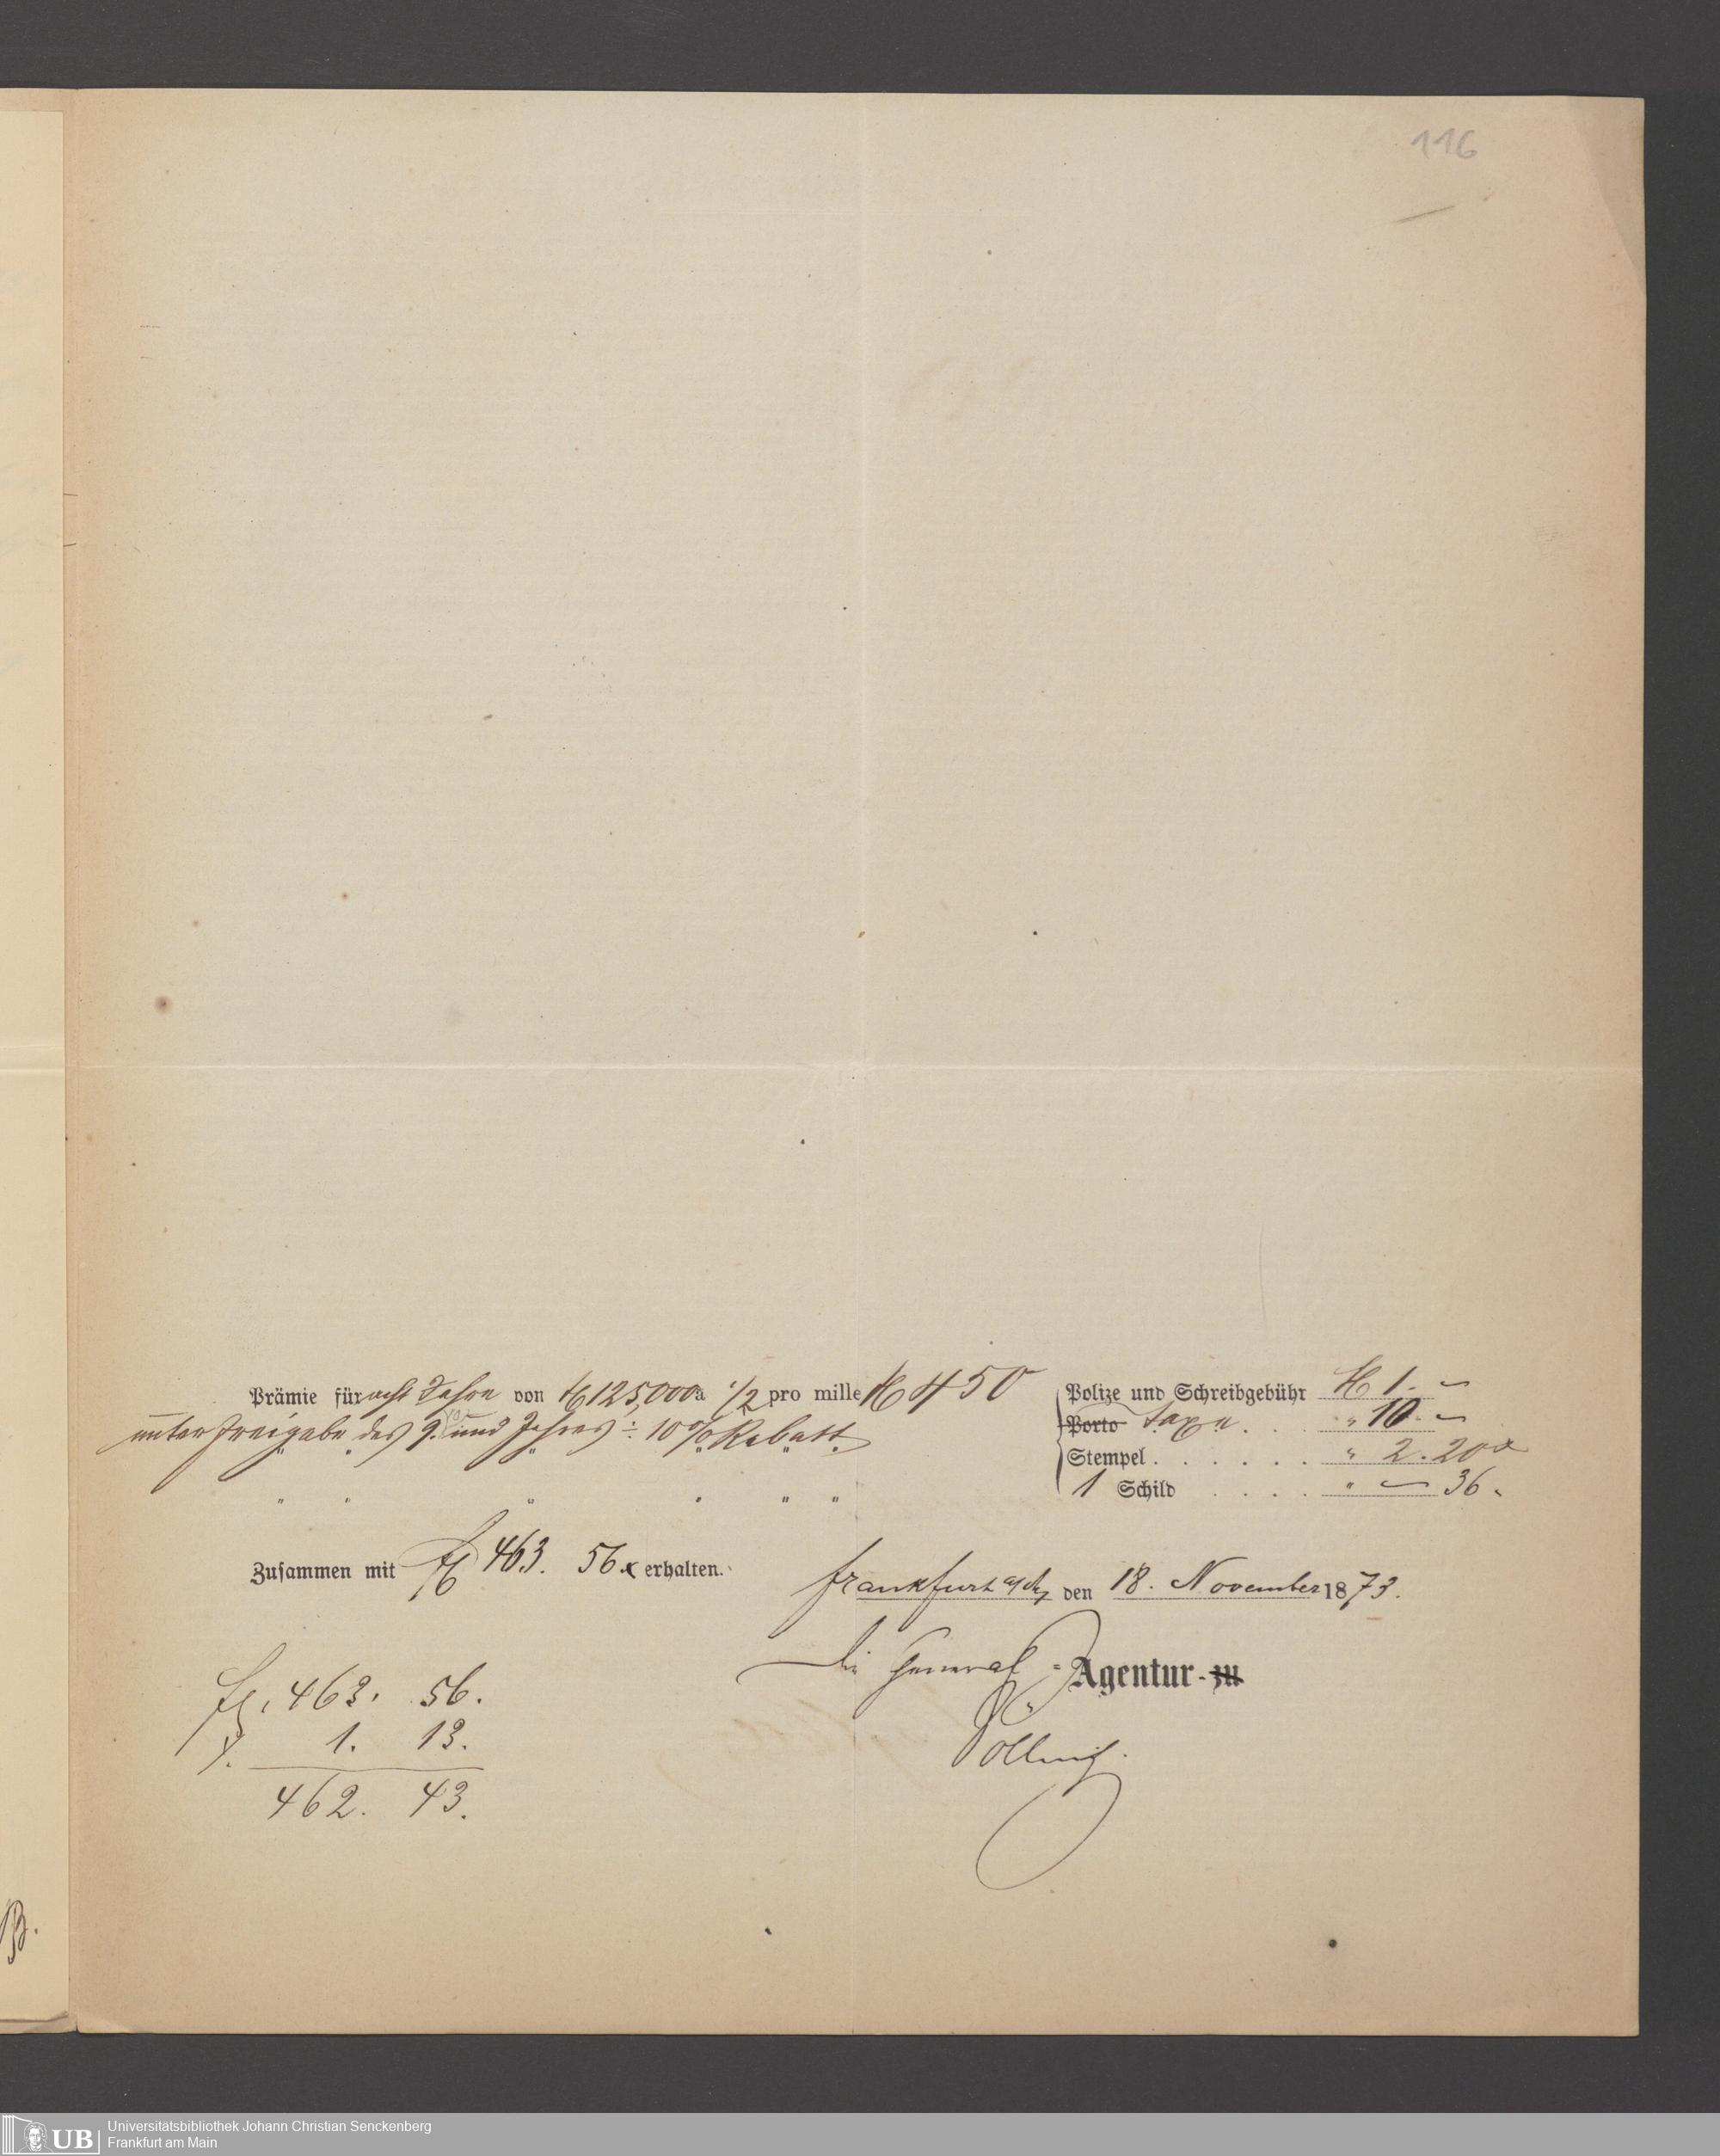 116
Prämie für acht Jahre von fl 125,000 a 1/2 pro mille fl 450
unter Freigabe des 9. und Jahres ÷ 10% Rabatt
" " " " " "
Polize und Schreibgebühr fl 1. –
Porto Taxe . . . " 10. –
Stempel . . . . . . " 2. 20 x
1 Schild . . . . " – 36 "
Zusammen mit fl 463. 56 x erhalten.
Frankfurt a/M, den 18. November 1873.
Die General-Agentur zu
fl. 463. 56.
1. 13.
462. 43.
B.
UB
Universitätsbibliothek Johann Christian Senckenberg
Frankfurt am Main